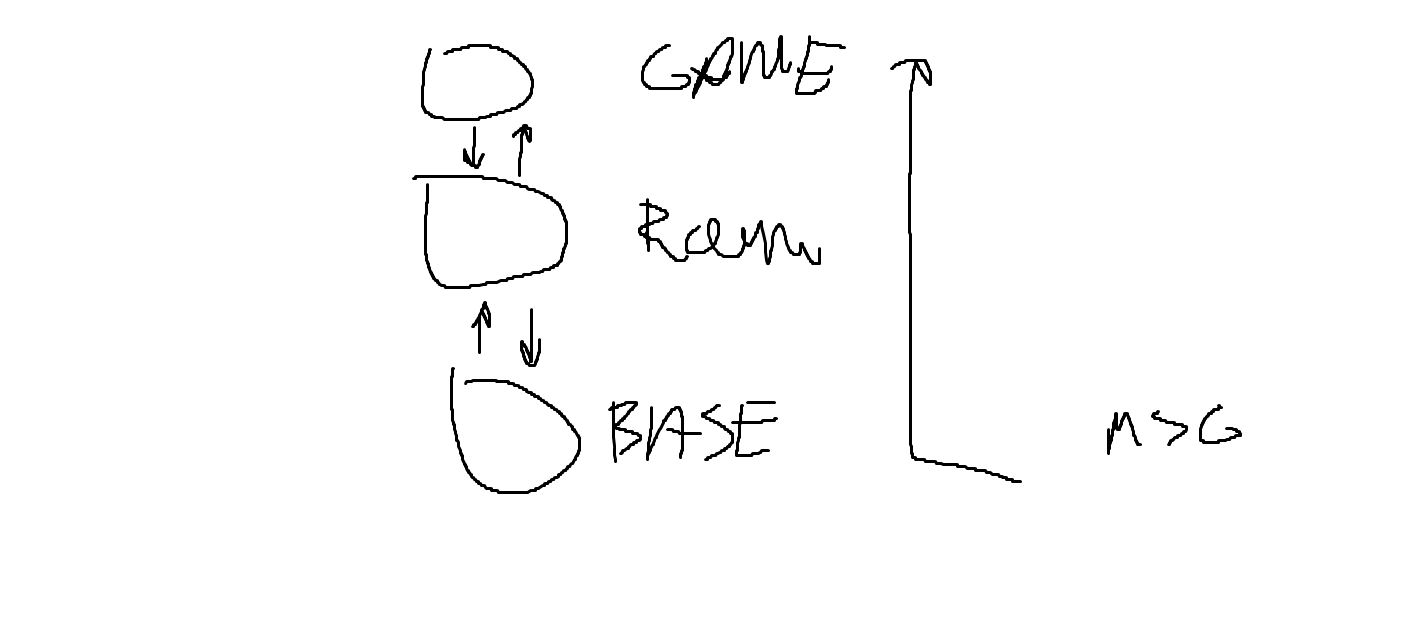 GAME
Room
BASE
MSG